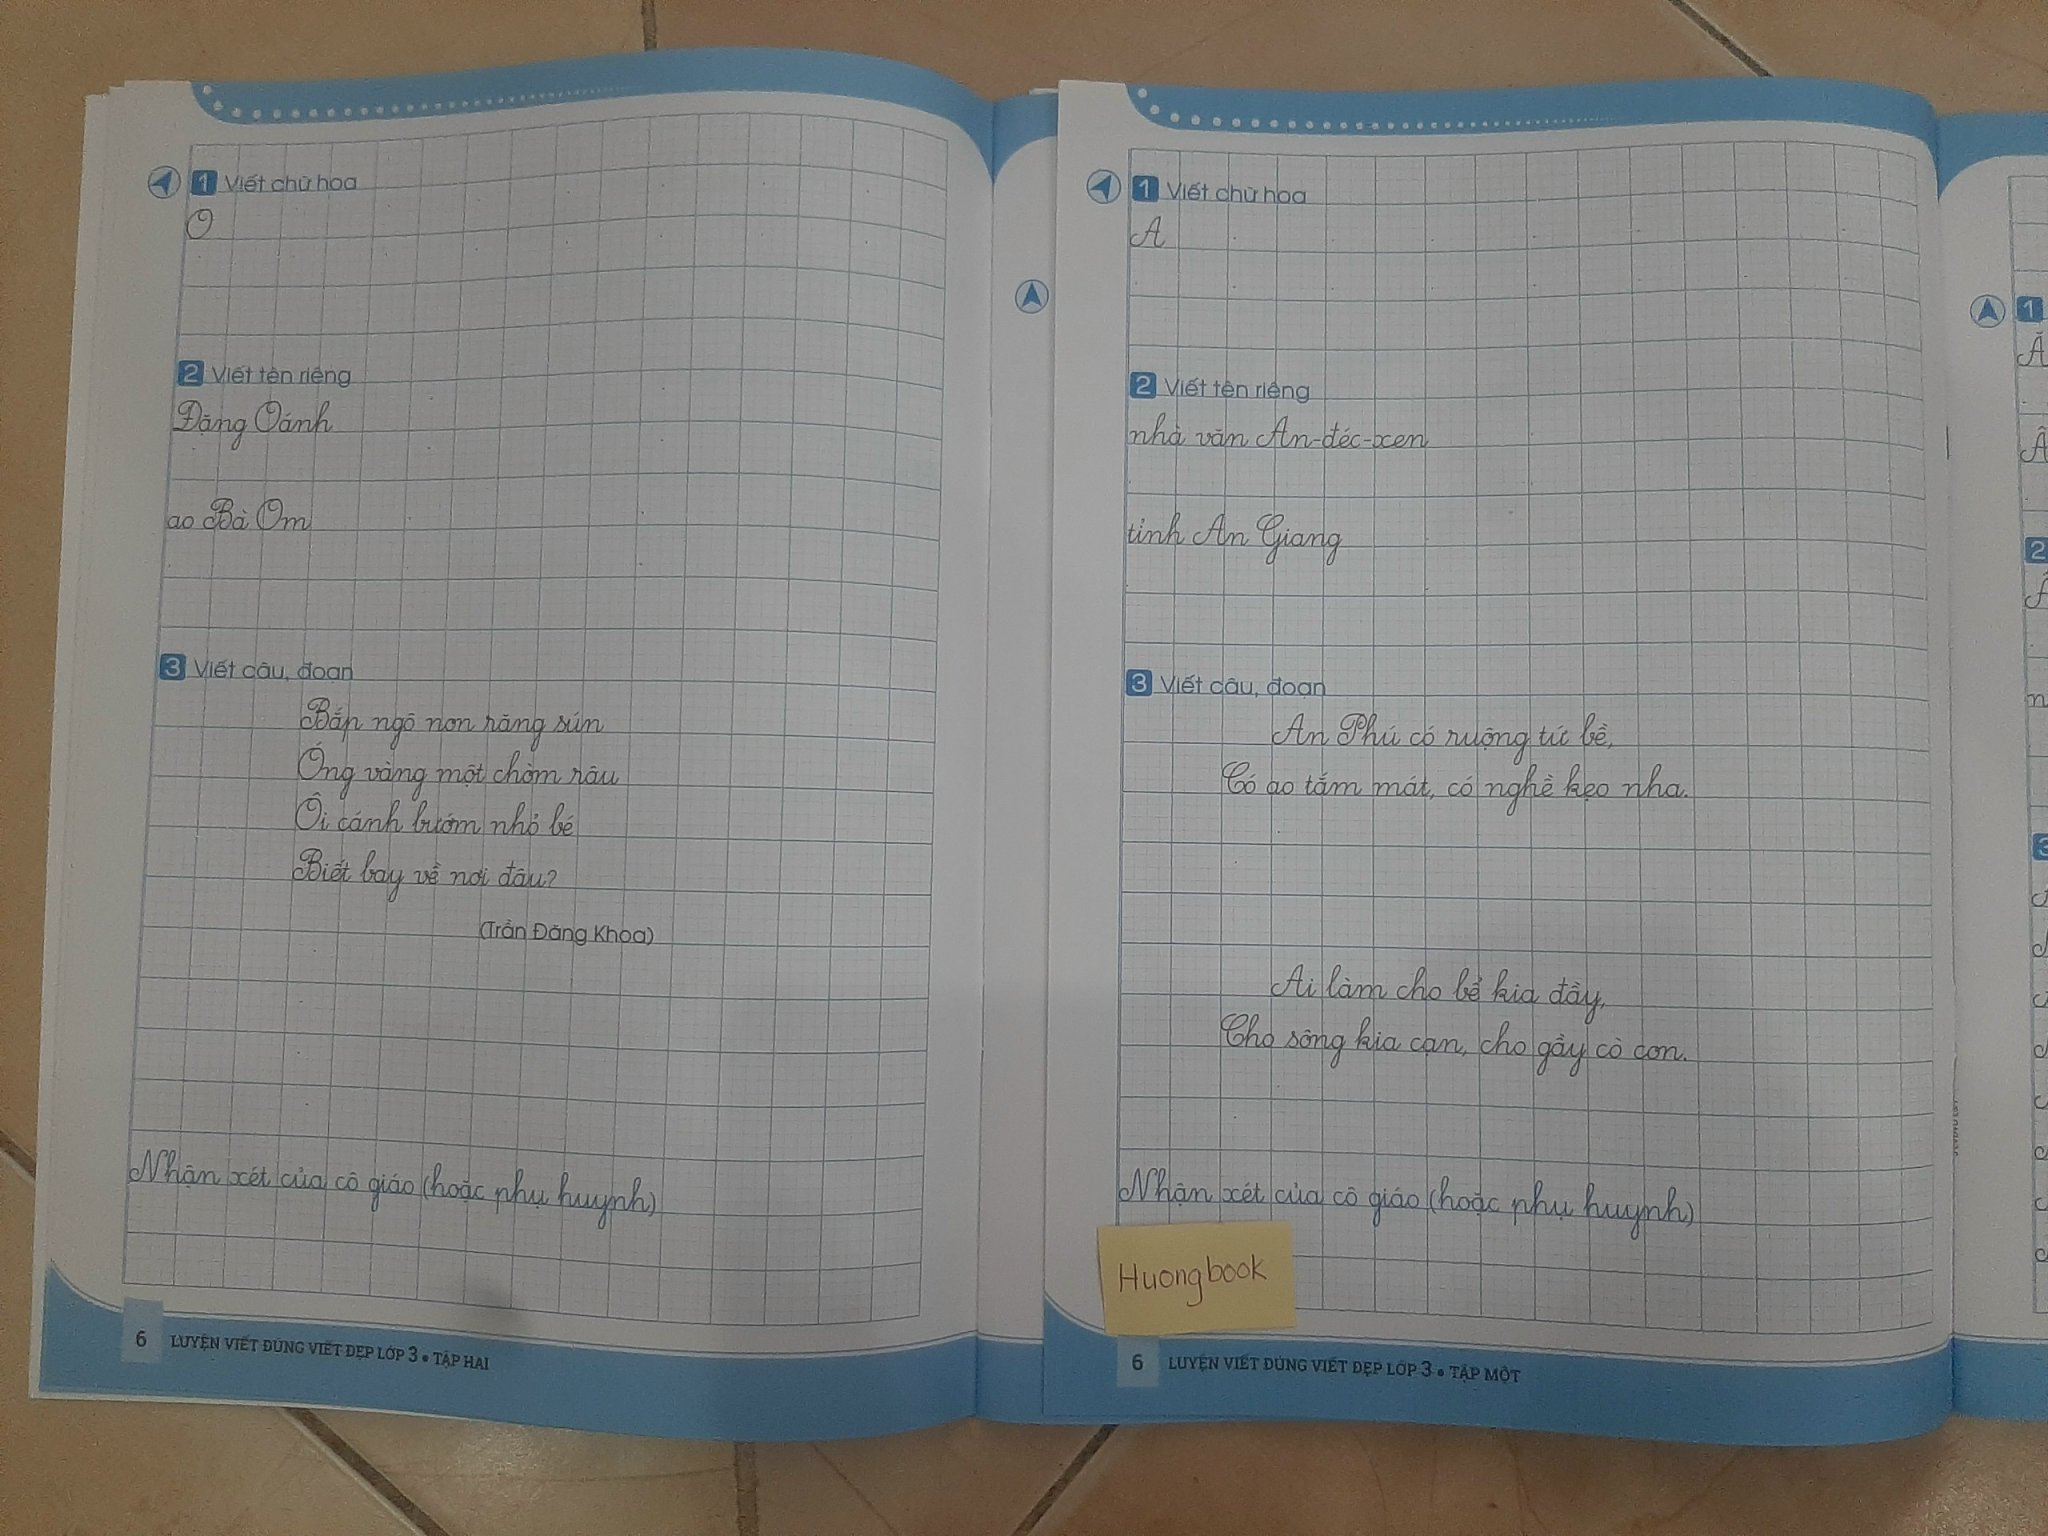 1 Viết chữ hoa
O
2 Viết tên riêng
Đặng Oánh
ao Bà Om
3 Viết câu, đoạn
Bắp ngô non răng sún
Óng vàng một chòm râu
Ôi cánh bướm nhỏ bé
Biết bay về nơi đâu?
(Trần Đăng Khoa)
Nhận xét của cô giáo (hoặc phụ huynh)
6 LUYỆN VIẾT ĐÚNG VIẾT ĐẸP LỚP 3 • TẬP HAI
1 Viết chữ hoa
A
2 Viết tên riêng
nhà văn An-đéc-xen
tỉnh An Giang
3 Viết câu, đoạn
An Phú có ruộng tứ bề,
Có ao tắm mát, có nghề kẹo nha.
Ai làm cho bể kia đầy,
Cho sông kia cạn, cho gầy cò con.
Nhận xét của cô giáo (hoặc phụ huynh)
Huongbook
6 LUYỆN VIẾT ĐÚNG VIẾT ĐẸP LỚP 3 • TẬP MỘT
1
Ă
Â
2
3